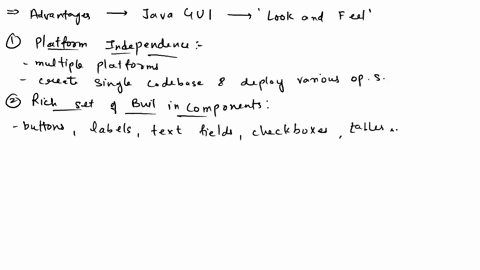 ⇒ Advantages → Java GUI → 'Look and Feel'
① Platform Independence :-
- multiple platforms
- create single codebase & deploy various op. s.
② Rich set of Buil in components :
- buttons, labels, text fields, checkboxes, tables ..